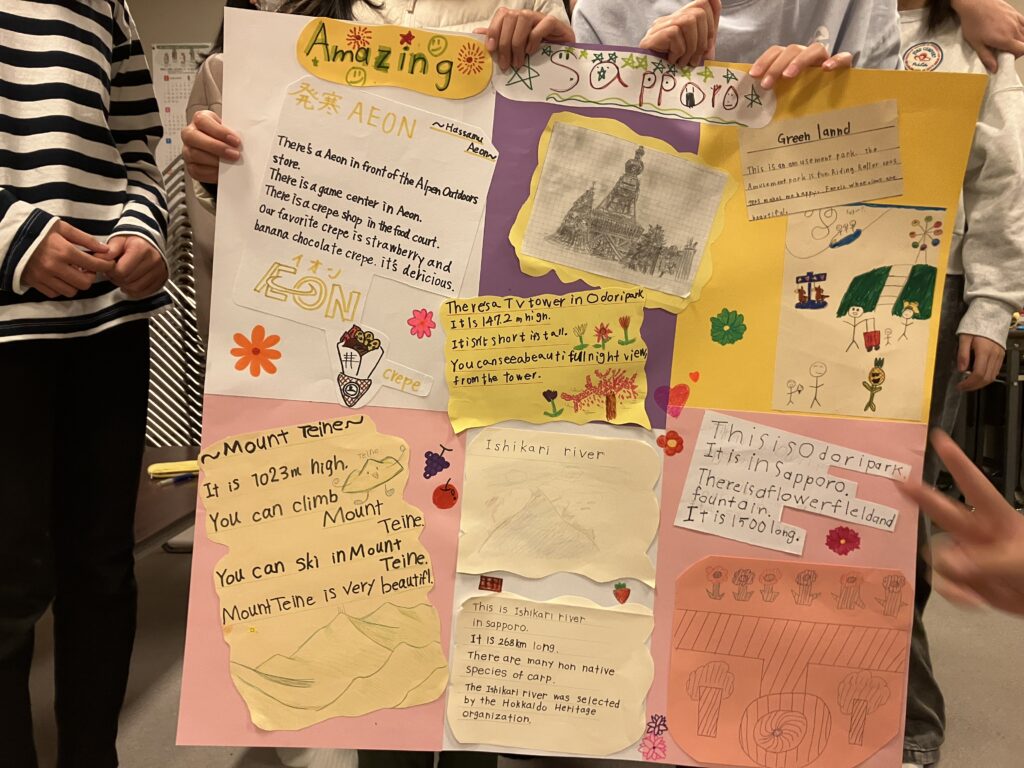 Amazing
Sapporo
発寒 AEON
~Hassamu
Aeon~
There's a Aeon in front of the Alpen Outdoors
store.
There is a game center in Aeon.
There is a crepe shop in the food court.
Our favorite crepe is strawberry and
banana chocolate crepe. it's dericious.
イオン
ÆON
crepe
There's a TV tower in Odori park.
It Is 147.2 m high.
It isn't short in tall.
You can see a beautifull night view,
from the tower.
Green lannd
This is an amusement park. The
Amusement park is fun Riding Roller
makes me happy. Ferris wheel
beautiful.
~Mount Teine~
It is 1023m high.
Teine
You can climb
Mount
Teine.
You can ski in Mount
Teine.
Mount Teine is very beautifl.
Ishikari river
This is Ishikari river
in sapporo.
It is 268km long.
There are many non native
species of carp.
The Ishikari river was selected
by the Hokkaldo Heritage
organization.
This is Odori park
It is in Sapporo.
There is a flower fleld and
fountain.
It is 1500 long.